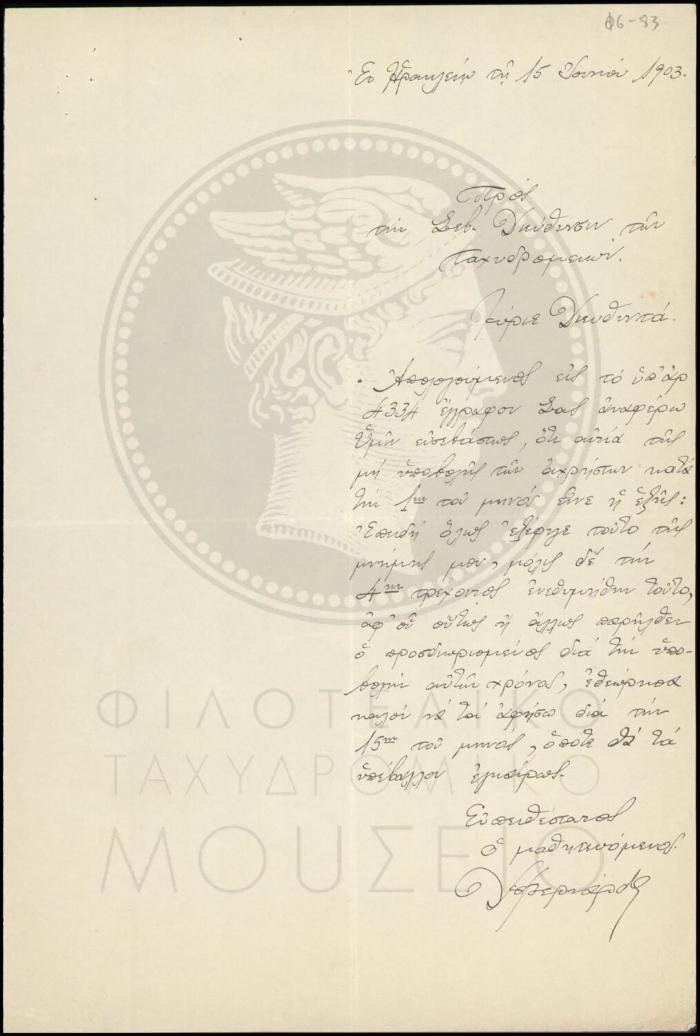 Φ6-83
Ἐν Ἡρακλείῳ τῇ 15 Ἰουνίου 1903.
Πρὸς
τὴν Σεβ. Διεύθυνσιν τῶν
Ταχυδρομείων.
Κύριε Διευθυντά.
Ἀπολογούμενος εἰς τὸ ὑπ' ἀρ
4334 ἔγγραφον Σας ἀναφέρω
Ὑμῖν εὐσεβάστως, ὅτι αἰτία τῆς
μὴ ὑποβολῆς τῶν ἀχρήστων κατὰ
τὴν 1ην τοῦ μηνὸς εἶνε ἡ ἑξῆς:
Ἐπειδὴ ὅλως ἐξέφυγε τοῦτο τῆς
μνήμης μου, μόλις δὲ τὴν
4ην τρέχοντος ἐνεθυμήθην τοῦτο,
ἀφ' οὗ οὕτως ἢ ἄλλως παρῆλθεν
ὁ προσδιωρισμένος διὰ τὴν ὑπο-
βολὴν αὐτῶν χρόνος, ἐθεώρησα
καλὸν νὰ τὰ ἀφήσω διὰ τὴν
15ην τοῦ μηνὸς, ὁπότε θὰ τὰ
ὑπέβαλλον ἐγκαίρως.
Εὐπειθέστατος
ὁ μαθητευόμενος
ΦΙΛΟΤΕΛΙΚΟ
ΤΑΧΥΔΡΟΜΙΚΟ
ΜΟΥΣΕΙΟ